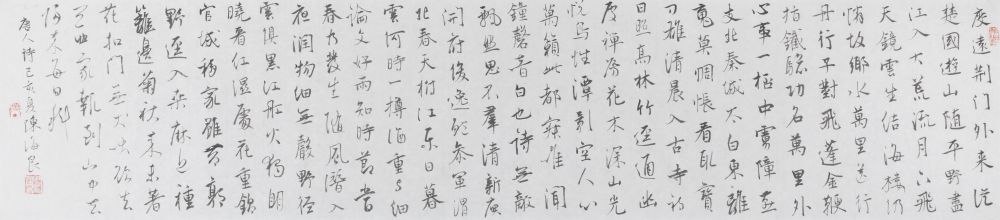 度遠荆门外来从
楚國遊山随平野盡
江入大荒流月下飛
天鏡雲生结海楼仍
憐故鄉水萬里送行
舟行子對飛蓬金鞭
指鐵驄功名萬里外
心事一杯中虜障燕
支北秦城太白東離
魂莫惆悵看取寶
刀雄清晨入古寺初
日照高林竹逕通幽
處禅房花木深山光
悦鸟性潭影空人心
萬籟此都寂惟聞
鐘磬音白也诗無敵
飄然思不羣清新庾
開府俊逸鲍参軍渭
北春天树江东日暮
雲何時一樽酒重与细
論文好雨知時節當
春乃發生随風潛入
夜润物细無聲野径
雲俱黑江船火獨朙
曉看红濕處花重錦
官城移家雖带郭
野逕入桑麻近種
籬邊菊秋来未著
花扣门無犬吠欲去
问西家報到山中去
归来每日斜
唐人诗己亥夏陳海良